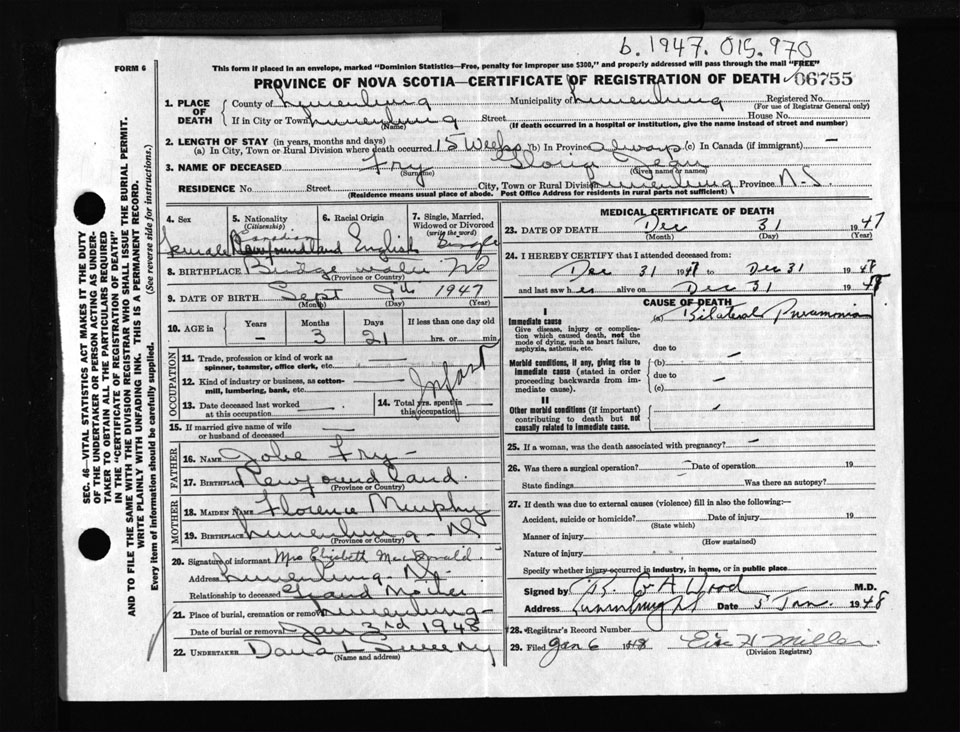 b. 1947. 015. 970
FORM 6
This form if placed in an envelope, marked "Dominion Statistics—Free, penalty for improper use $300," and properly addressed will pass through the mail "FREE"
PROVINCE OF NOVA SCOTIA—CERTIFICATE OF REGISTRATION OF DEATH 06755
1. PLACE OF DEATH
County of Lunenburg Municipality of Lunenburg Registered No.
(For use of Registrar General only)
If in City or Town Lunenburg Street House No.
(Name) (If death occurred in a hospital or institution, give the name instead of street and number)
2. LENGTH OF STAY (in years, months and days)
(a) In City, Town or Rural Division where death occurred 15 Weeks (b) In Province always (c) In Canada (if immigrant) —
3. NAME OF DECEASED Fry Gloria Jean
(Surname) (Given name or names)
RESIDENCE No Street City, Town or Rural Division Lunenburg Province N.S.
(Residence means usual place of abode. Post Office Address for residents in rural parts not sufficient)
SEC. 46—VITAL STATISTICS ACT MAKES IT THE DUTY
OF THE UNDERTAKER OR PERSON ACTING AS UNDER-
TAKER TO OBTAIN ALL THE PARTICULARS REQUIRED
IN THE "CERTIFICATE OF REGISTRATION OF DEATH"
AND TO FILE THE SAME WITH THE DIVISION REGISTRAR WHO SHALL ISSUE THE BURIAL PERMIT.
WRITE PLAINLY WITH UNFADING INK. THIS IS A PERMANENT RECORD.
Every item of information should be carefully supplied. (See reverse side for instructions.)
4. Sex
female
5. Nationality
(Citizenship)
Canadian
Newfoundland
6. Racial Origin
English
7. Single, Married, Widowed or Divorced
(write the word)
Single
8. BIRTHPLACE Bridgewater NS
(Province or Country)
9. DATE OF BIRTH Sept 9th 1947
(Month) (Day) (Year)
10. AGE in Years Months Days If less than one day old
— 3 21 hrs. or min.
OCCUPATION
11. Trade, profession or kind of work as
spinner, teamster, office clerk, etc.
12. Kind of industry or business, as cotton-
mill, lumbering, bank, etc.
Infant
13. Date deceased last worked
at this occupation
14. Total yrs. spent in
this occupation
15. If married give name of wife
or husband of deceased —
FATHER
16. Name John Fry —
17. Birthplace Newfoundland.
(Province or Country)
MOTHER
18. MAIDEN NAME Florence Murphy
19. Birthplace Lunenburg - NS
(Province or Country)
20. Signature of informant Mrs Elizabeth MacDonald
Address Lunenburg - N.S.
Relationship to deceased Grand Mother
21. Place of burial, cremation or removal Lunenburg -
Date of burial or removal Jan 3rd 1948
22. UNDERTAKER Dana L Sweeny
(Name and address)
MEDICAL CERTIFICATE OF DEATH
23. DATE OF DEATH Dec 31 1947
(Month) (Day) (Year)
24. I HEREBY CERTIFY that I attended deceased from:
Dec 31 1947 to Dec 31 1948
and last saw h er alive on Dec 31 1948
CAUSE OF DEATH
I
Immediate cause
Give disease, injury or complica-
tion which caused death, not the
mode of dying, such as heart failure,
asphyxia, asthenia, etc.
(a) Bilateral Pneumonia
due to
Morbid conditions, if any, giving rise to
immediate cause (stated in order
proceeding backwards from im-
mediate cause).
(b) —
due to
(c) —
II
Other morbid conditions (if important)
contributing to death but not
causally related to immediate cause.
25. If a woman, was the death associated with pregnancy? —
26. Was there a surgical operation? — Date of operation 19
State findings Was there an autopsy?
27. If death was due to external causes (violence) fill in also the following:—
Accident, suicide or homicide? Date of injury 19
(State which)
Manner of injury
(How sustained)
Nature of injury
Specify whether injury occurred in industry, in home, or in public place
Signed by R. G. A. Wood M.D.
Address Lunenburg NS Date 5 Jan. 1948
28. Registrar's Record Number
29. Filed Jan 6 1948 H Miller.
(Division Registrar)